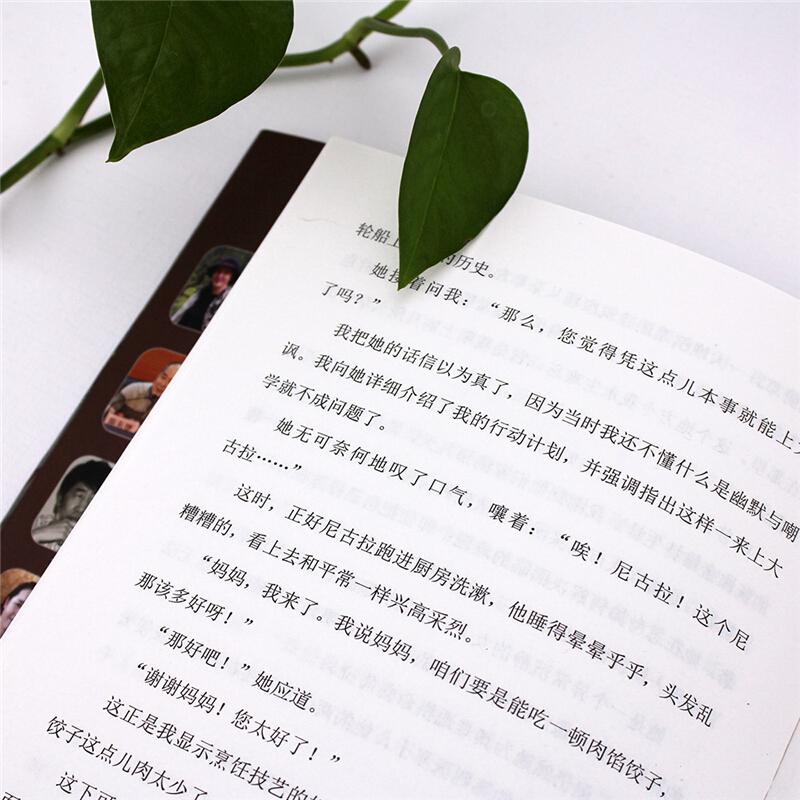 轮船上 的历史。
她接着问我：“那么，您觉得凭这点儿本事就能上大
了吗？”
我把她的话信以为真了，因为当时我还不懂什么是幽默与嘲
讽。我向她详细介绍了我的行动计划，并强调指出这样一来上大
学就不成问题了。
她无可奈何地叹了口气，嚷着：“唉！尼古拉！这个尼
古拉……”
这时，正好尼古拉跑进厨房洗漱，他睡得晕晕乎乎，头发乱
糟糟的，看上去和平常一样兴高采烈。
“妈妈，我来了。我说妈妈，咱们要是能吃一顿肉馅饺子，
那该多好呀！”
“那好吧！”她应道。
“谢谢妈妈！您太好了！”
这正是我显示烹饪技艺的
饺子这点儿肉太少了
这下可